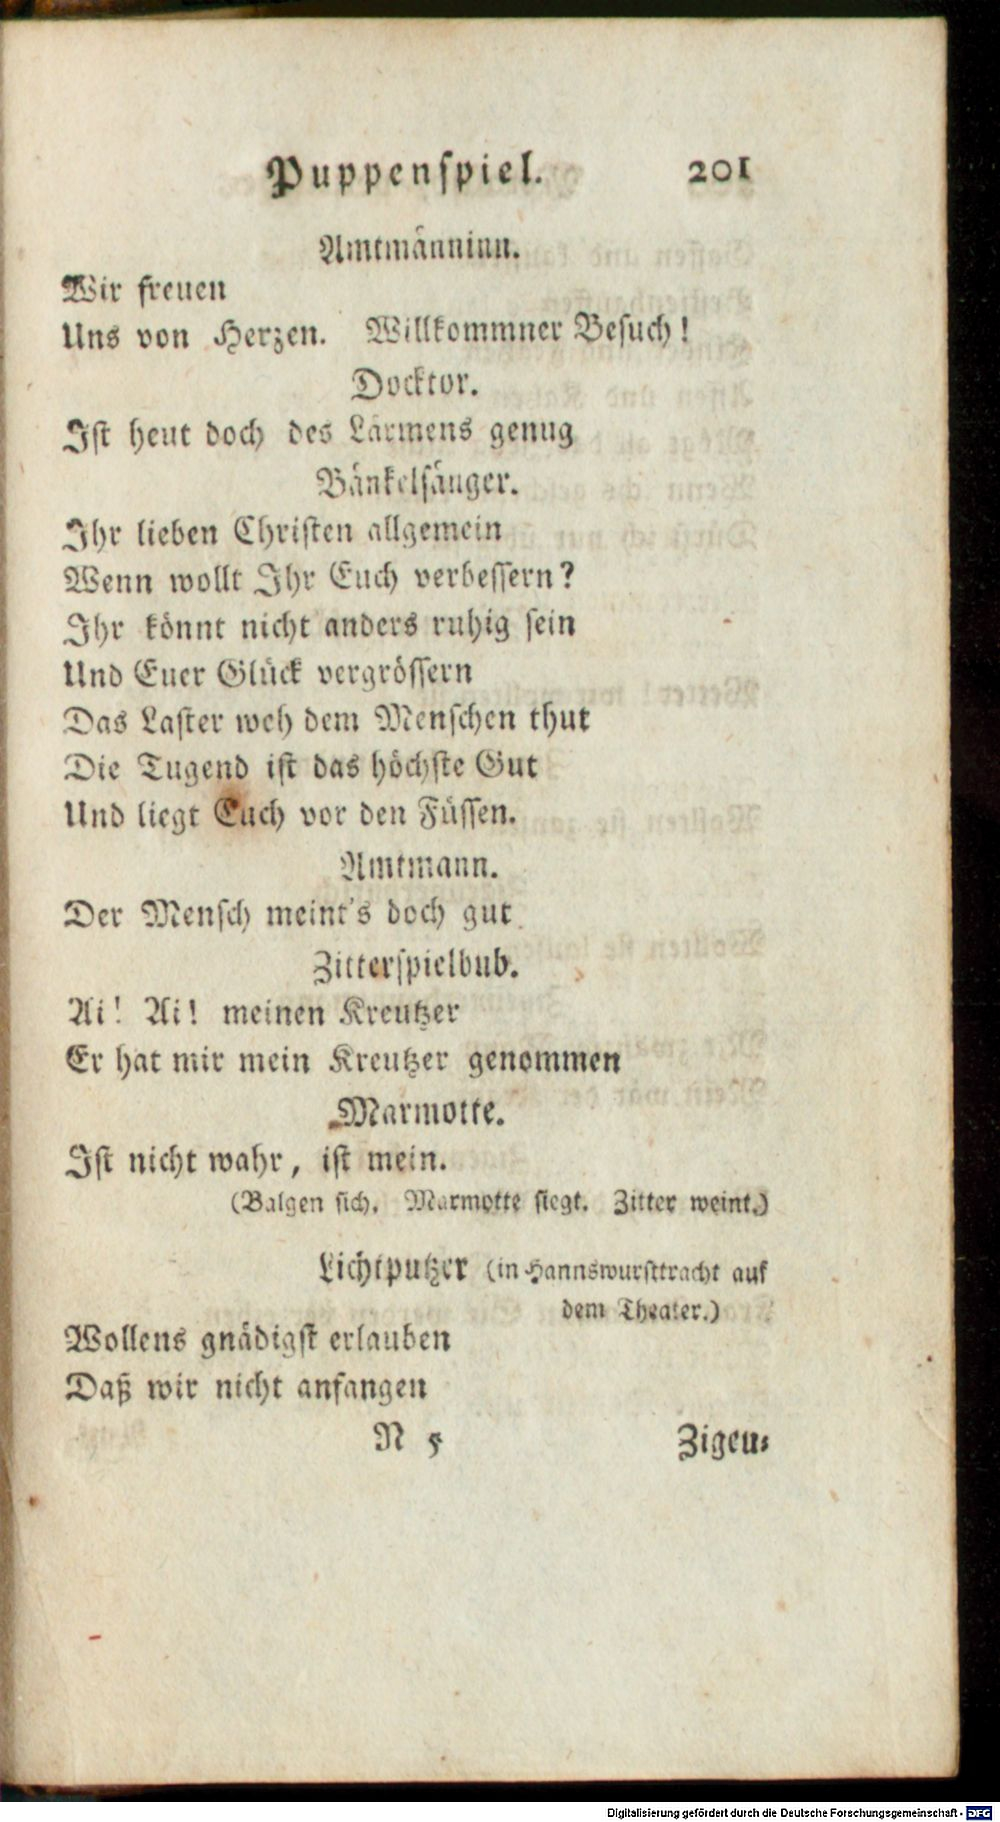 Puppenspiel. 201
Amtmänninn.
Wir freuen
Uns von Herzen. Willkommner Besuch!
Docktor.
Ist heut doch des Lärmens genug
Bänkelsänger.
Ihr lieben Christen allgemein
Wenn wollt Ihr Euch verbessern?
Ihr könnt nicht anders ruhig sein
Und Euer Glück vergrössern
Das Laster weh dem Menschen thut
Die Tugend ist das höchste Gut
Und liegt Euch vor den Füssen.
Amtmann.
Der Mensch meint's doch gut.
Zitterspielbub.
Ai! Ai! meinen Kreutzer
Er hat mir mein Kreutzer genommen
Marmotte.
Ist nicht wahr, ist mein.
(Balgen sich. Marmotte siegt. Zitter weint.)
Lichtputzer (in Hannswursttracht auf
dem Theater.)
Wollens gnädigst erlauben
Daß wir nicht anfangen
N 5 Zigeu-
Digitalisierung gefördert durch die Deutsche Forschungsgemeinschaft - DFG